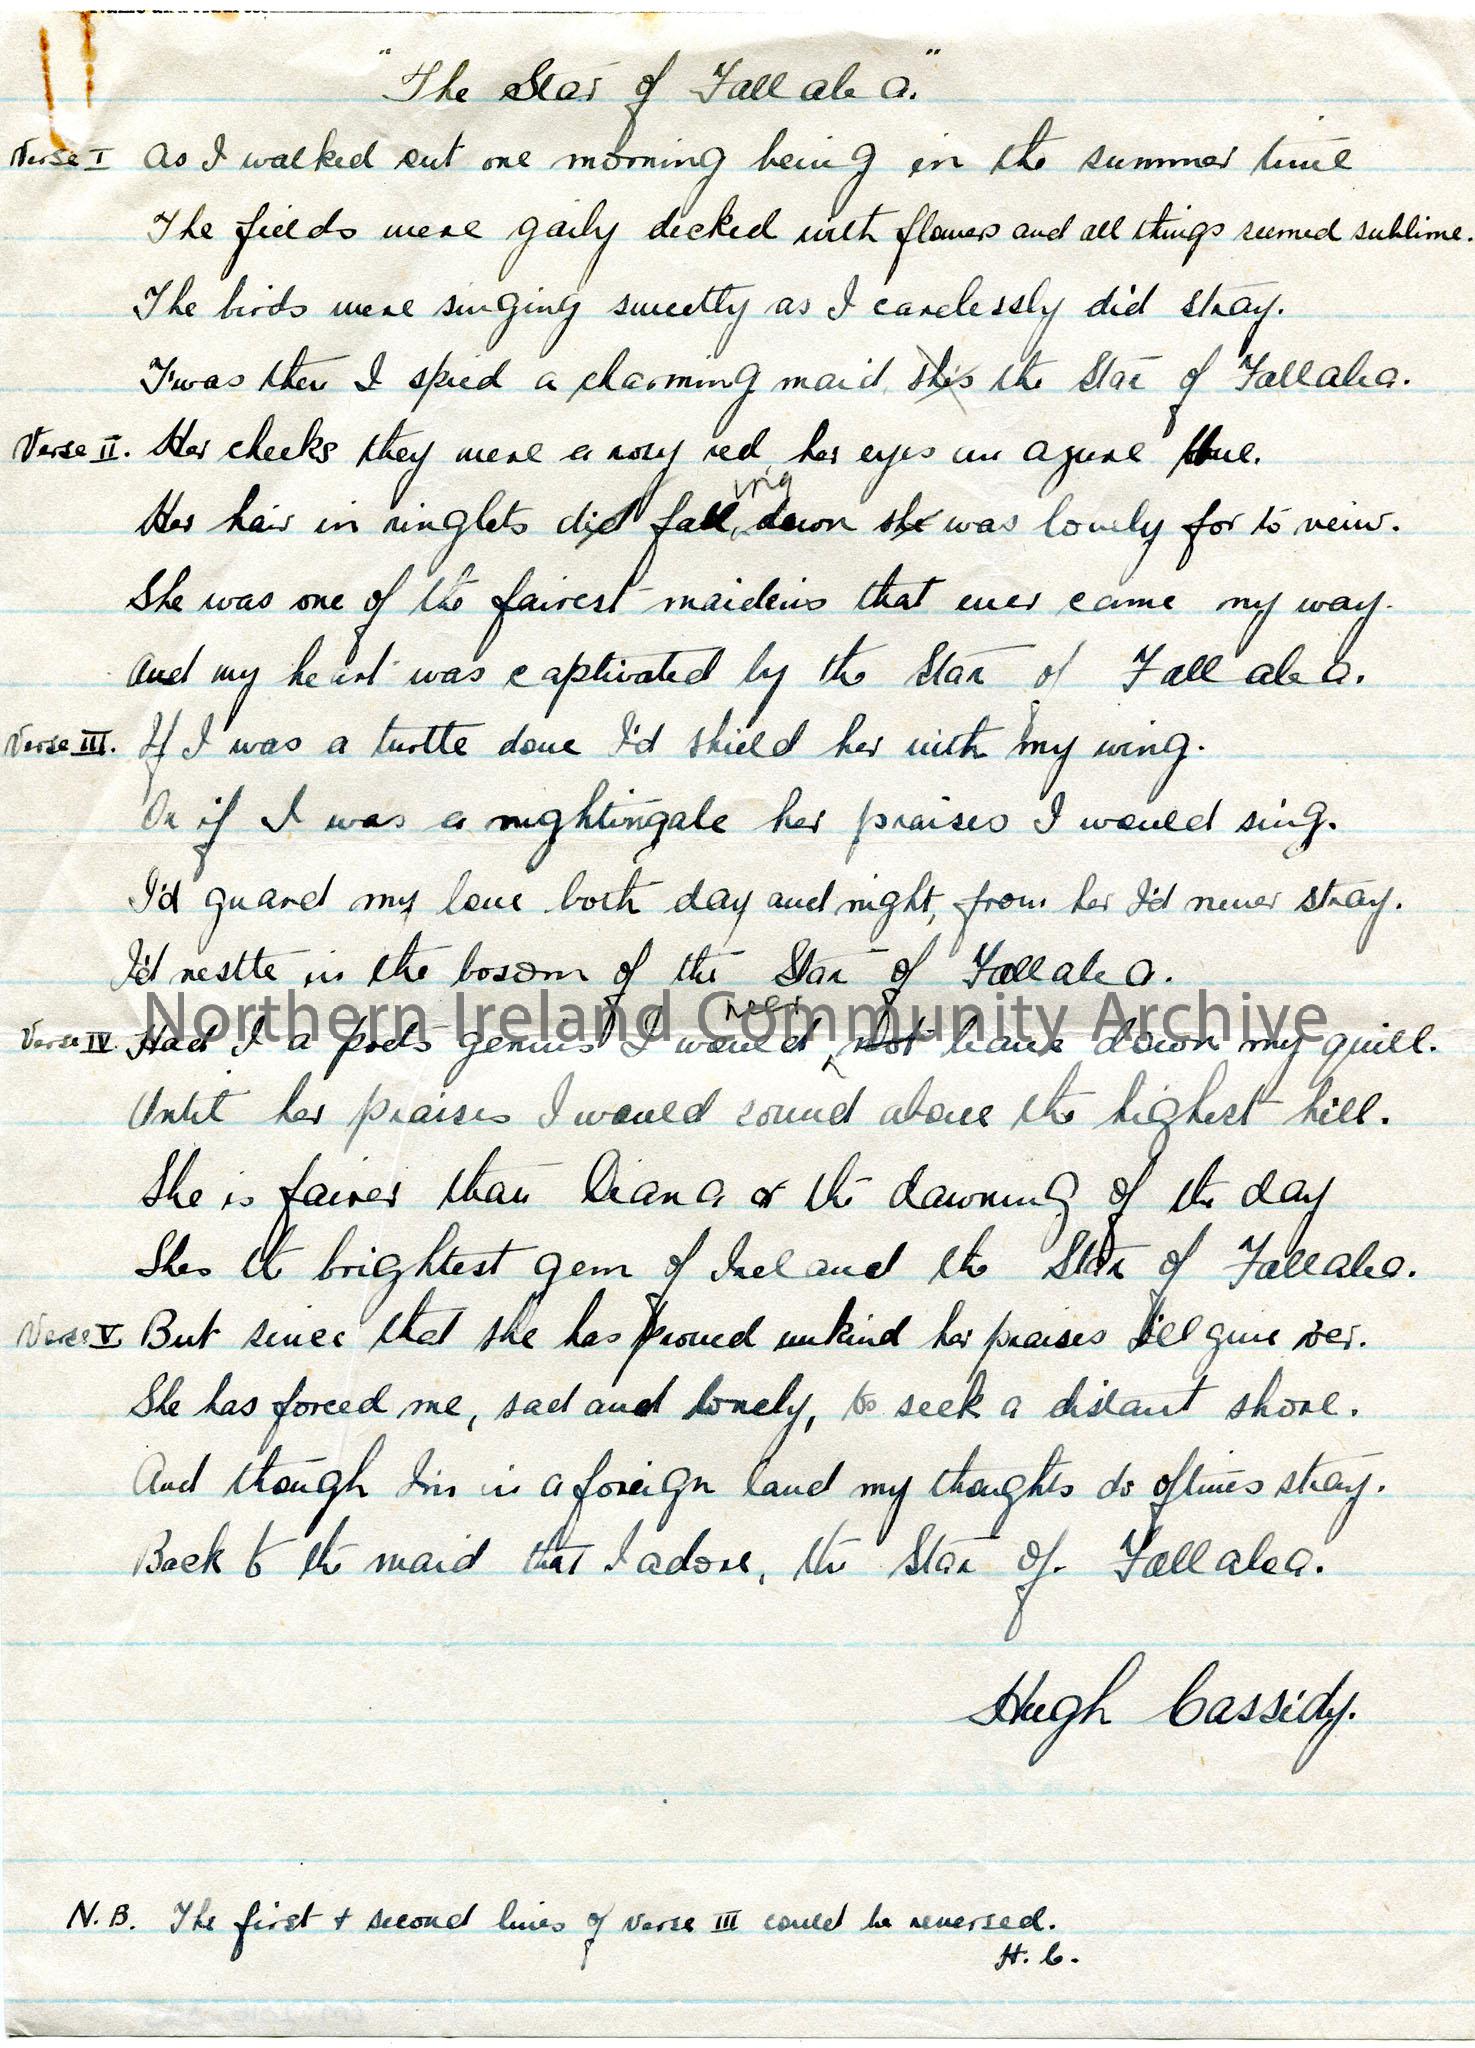 "The Star of Fallalea."
Verse I As I walked out one morning being in the summer time
The fields were gaily decked with flowers and all things seemed sublime.
The birds were singing sweetly as I carelessly did stray.
T'was then I spied a charming maid, she's the Star of Fallalea.
Verse II. Her cheeks they were a rosy red, her eyes an azure blue.
ing
Her hair in ringlets did fall down she was lovely for to veiw.
She was one of the fairest maidens that ever came my way.
And my heart was captivated by the Star of Fallalea.
Verse III. If I was a turtle dove I'd shield her with my wing.
Or if I was a nightingale her praises I would sing.
I'd guard my love both day and night, from her I'd never stray.
I'd nestle in the bosom of the Star of Fallalea.
Northern Ireland Community Archive
neer
Verse IV Had I a poets genius I would not leave down my quill.
Until her praises I would sound above the highest hill.
She is fairer than Diana or the dawning of the day
Shes the brightest gem of Ireland the Star of Fallalea.
Verse V. But since that she has proved unkind her praises I'll give oer.
She has forced me, sad and lonely, to seek a distant shore.
And though I'm in a foreign land my thoughts do oftimes stray.
Back to the maid that I adore, the Star of Fallalea.
Hugh Cassidy.
N.B. The first + second lines of Verse III could be reversed.
H.C.